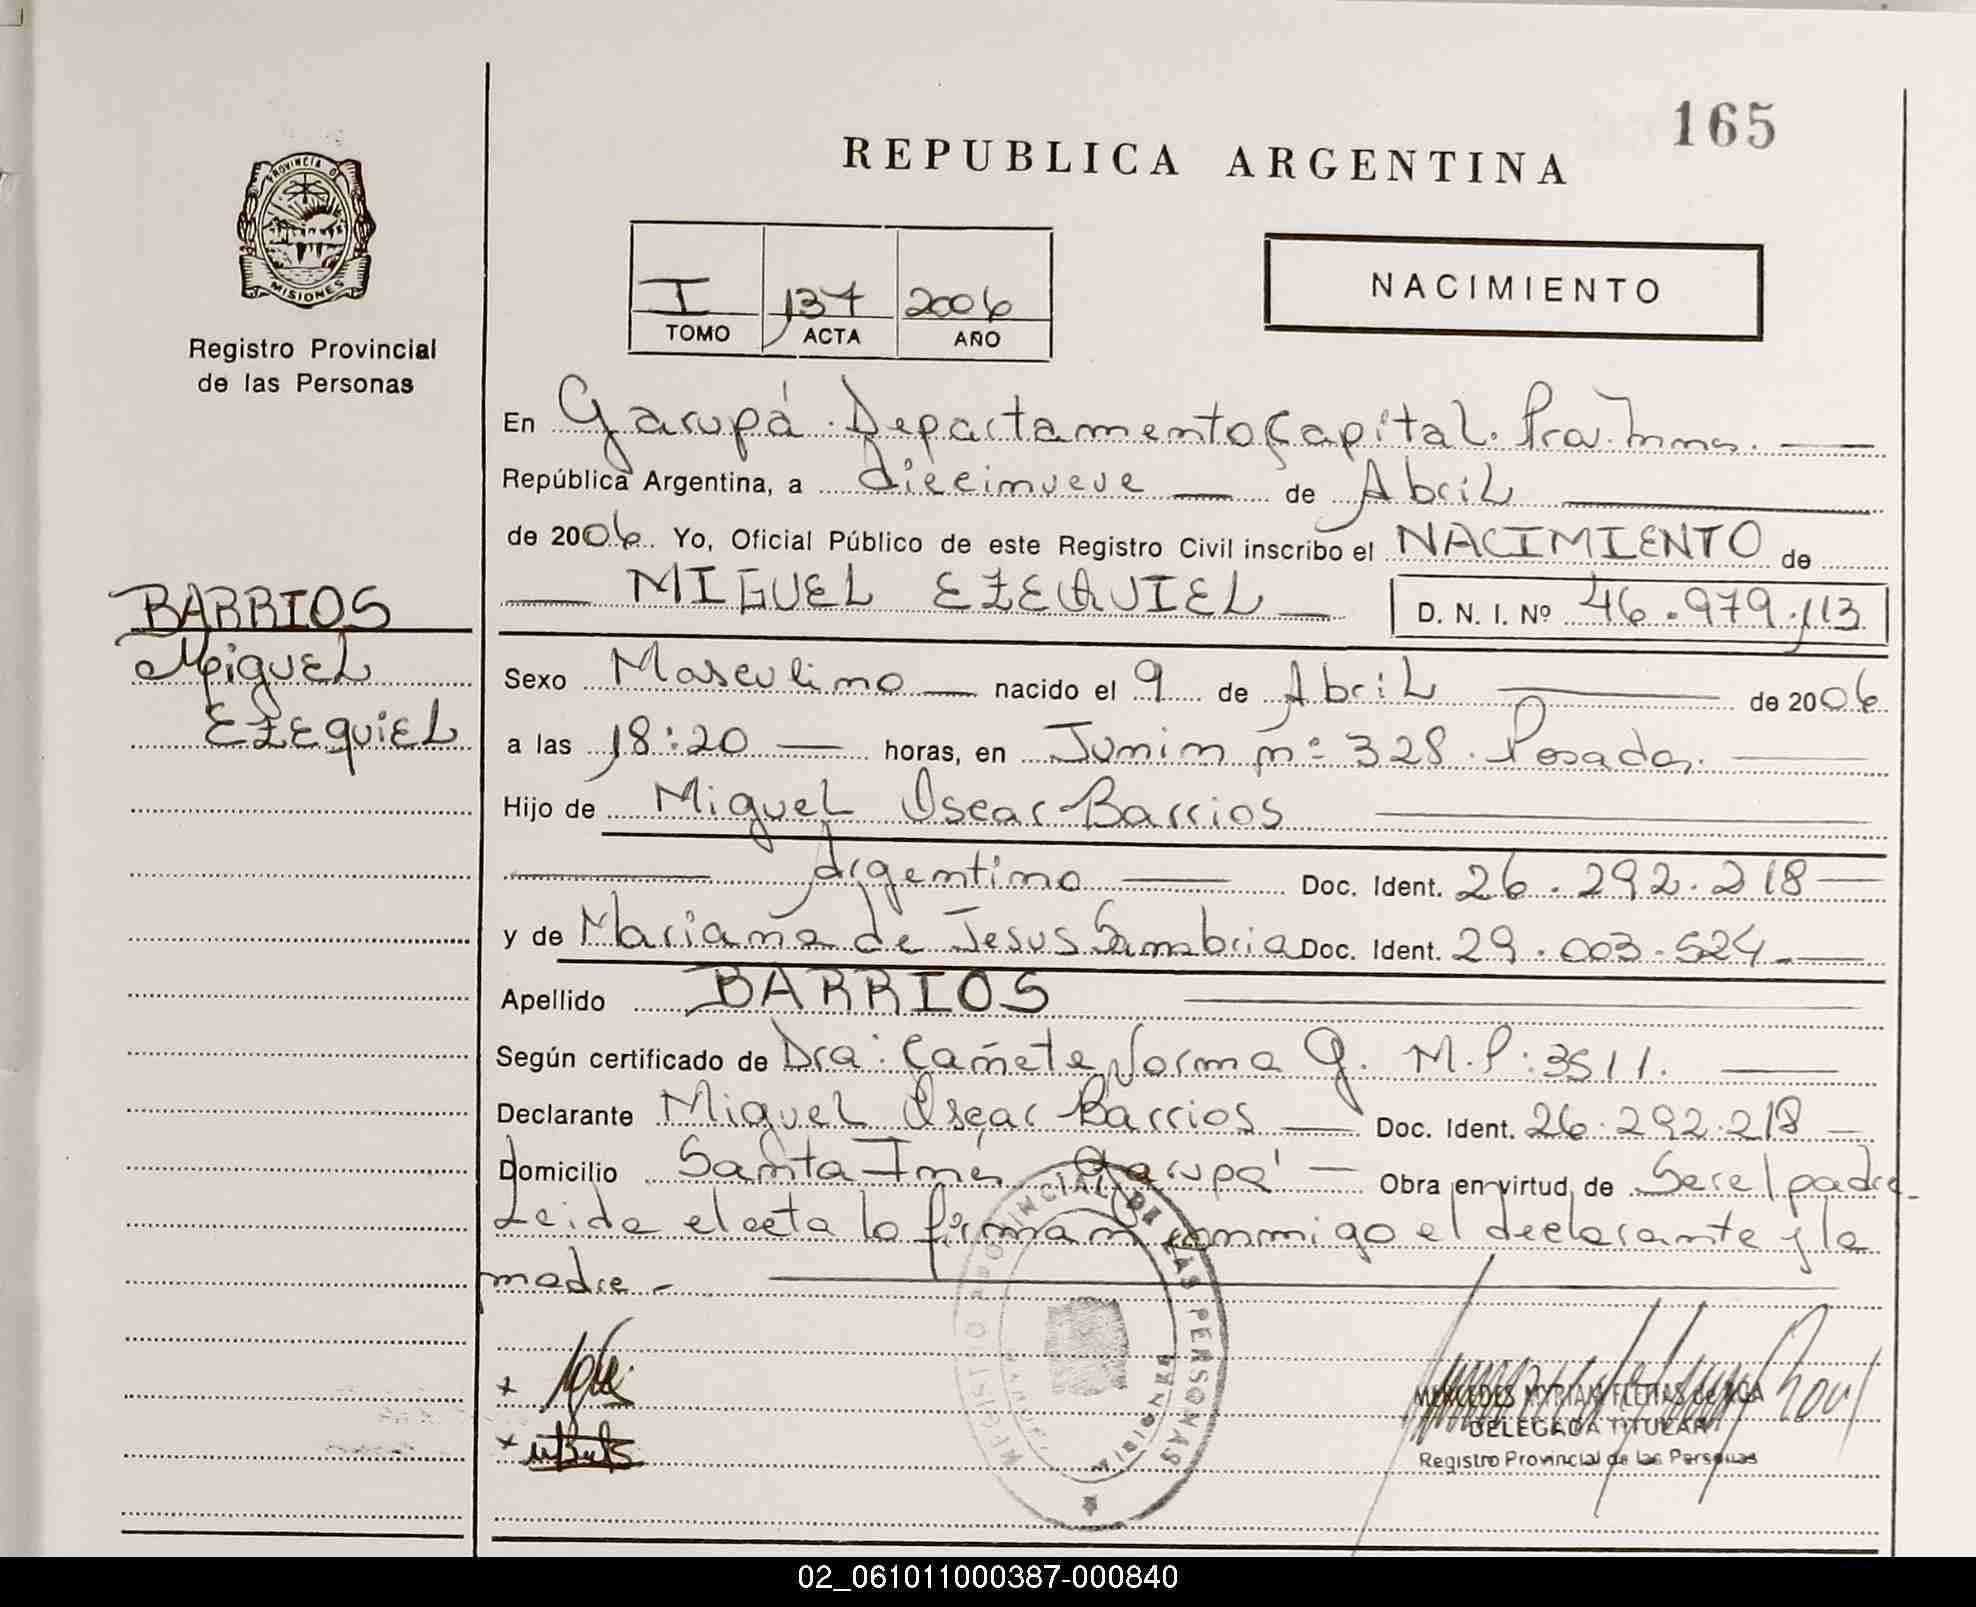 165
REPUBLICA ARGENTINA
PROVINCIA D
MISIONES
Registro Provincial
de las Personas
I 137 2006
TOMO ACTA AÑO
NACIMIENTO
En Garupá. Departamento Capital. Pcia. Mnes.
República Argentina, a diecinueve de Abril
de 2006 Yo, Oficial Público de este Registro Civil inscribo el NACIMIENTO de
MIGUEL EZEQUIEL D. N. I. Nº 46.979.113
BARRIOS
Miguel
Ezequiel
Sexo Masculino nacido el 9 de Abril de 2006
a las 18:20 horas, en Junin nº 328. Posadas.
Hijo de Miguel Oscar Barrios
Argentino Doc. Ident. 26.292.218
y de Mariana de Jesus Sanabria Doc. Ident. 29.003.524
Apellido BARRIOS
Según certificado de Dra: Cañete Norma G. M.P: 3511.
Declarante Miguel Oscar Barrios Doc. Ident. 26.292.218
Domicilio Santa Inés Garupá Obra en virtud de Ser el padre
Leida el acta la firman conmigo el declarante y la
madre
REGISTRO PROVINCIAL DE LAS PERSONAS
MERCEDES MYRIAN FLEITAS de ROA
DELEGADA TITULAR
Registro Provincial de las Personas
02_061011000387-000840